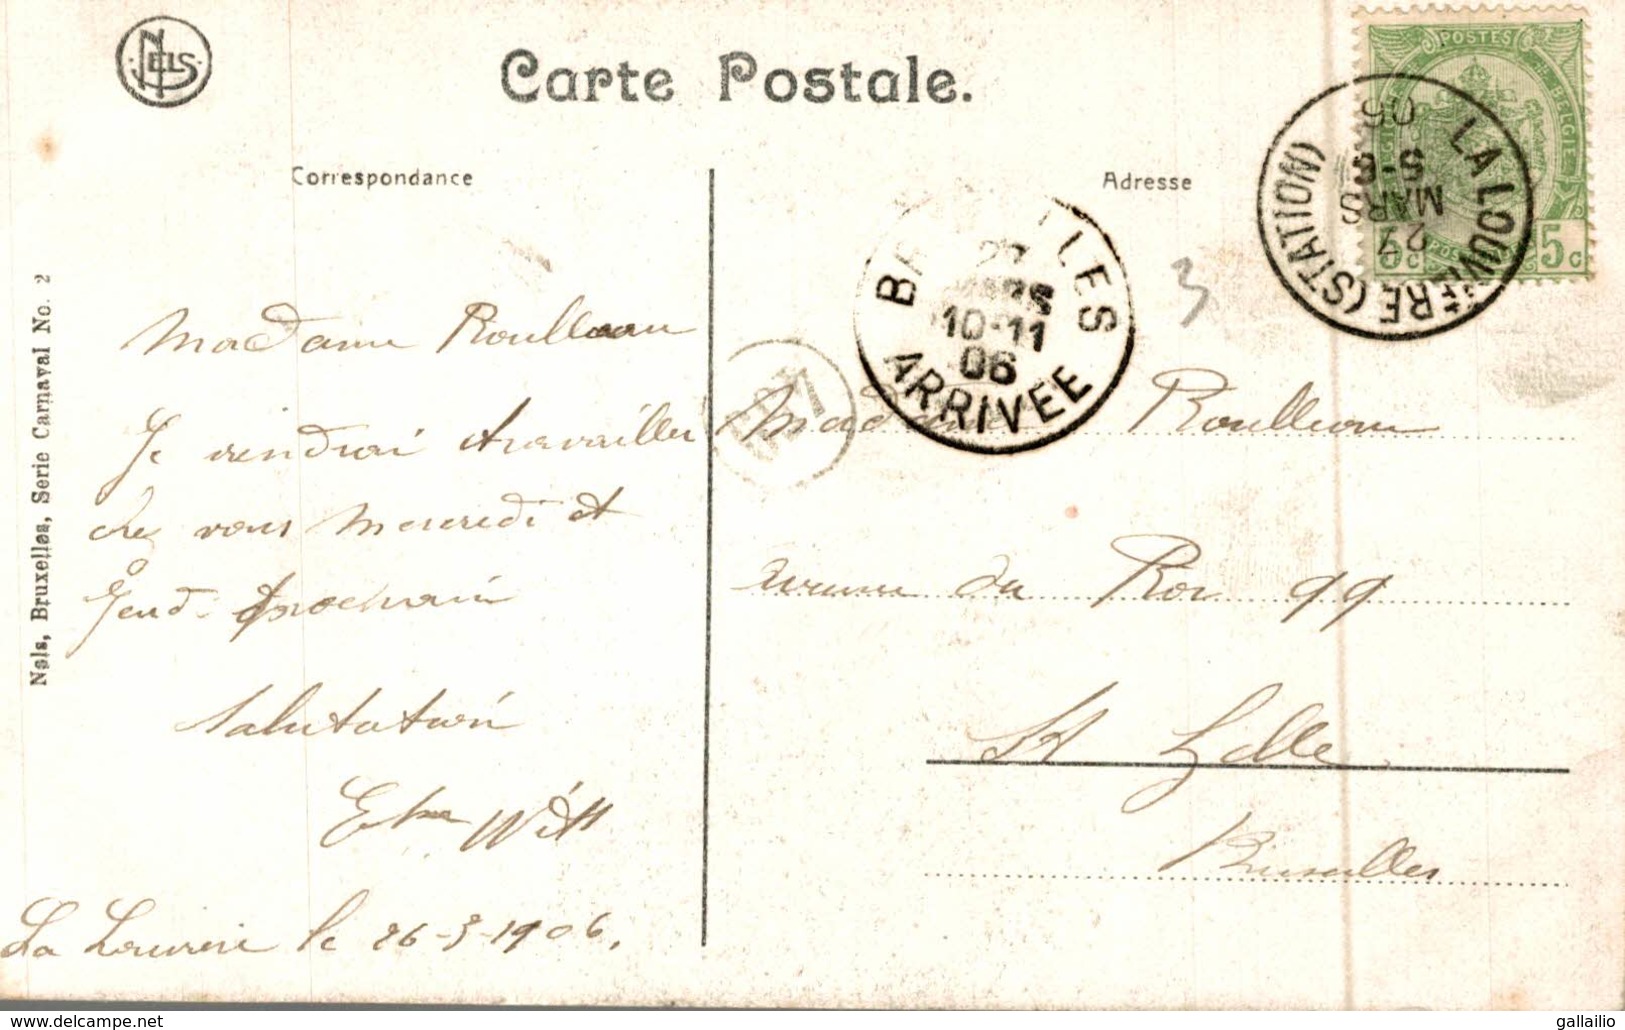 NELS
Carte Postale.
Correspondance
Adresse
POSTES
BELGIE
5c 5c
LA LOUVIÈRE (STATION)
27
MARS
5-6 S
06
27
MARS
10-11
06
ARRIVEE
3
Nels, Bruxelles, Serie Carnaval No. 2
Madame Roulleau
Je viendrai travailler
chez vous Mercredi et
Jeudi prochain
Salutation
Witt
La Louviere le 26-3-1906.
Madame Roulleau
avenue du Roi 99
St Gille
Bruxelles
delcampe.net
gallailio